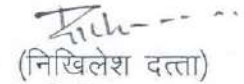 (निखिलेश दत्ता)